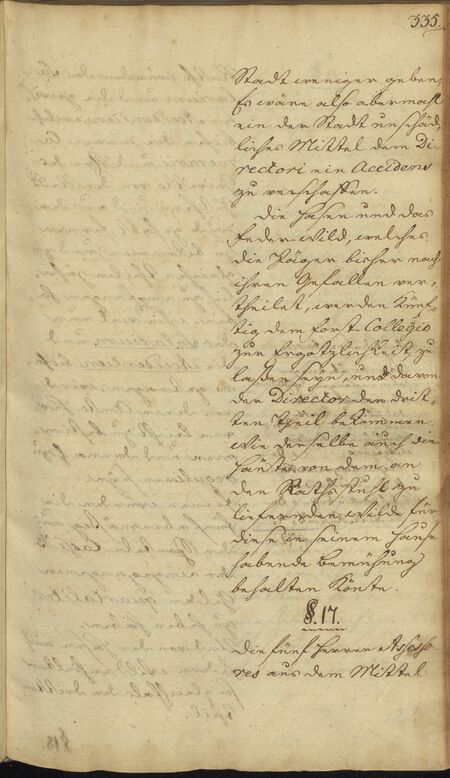 335.
Stadt weniger geben,
Es wäre also abermahl
ein der Stadt unschäd-
liches Mittel dem Di-
rectori ein Accidens
zu verschaffen.
Die Hasen und das
Feder-Wild, welches
die Jäger bisher nach
ihren Gefallen ver-
theilet, werden künf-
tig dem Forst Collegio
zur Ergötzlichkeit zu
laßen seyn, und davon
der Director den drit-
ten Theil bekommen,
wie derselbe auch die
Häute von dem an
den Raths Stuhl zu
liefernden Wild für
diese in seinem Hause
habende Bemühung
behalten könte.
§. 17.
Die fünf Herren Assesso-
res aus dem Mittel